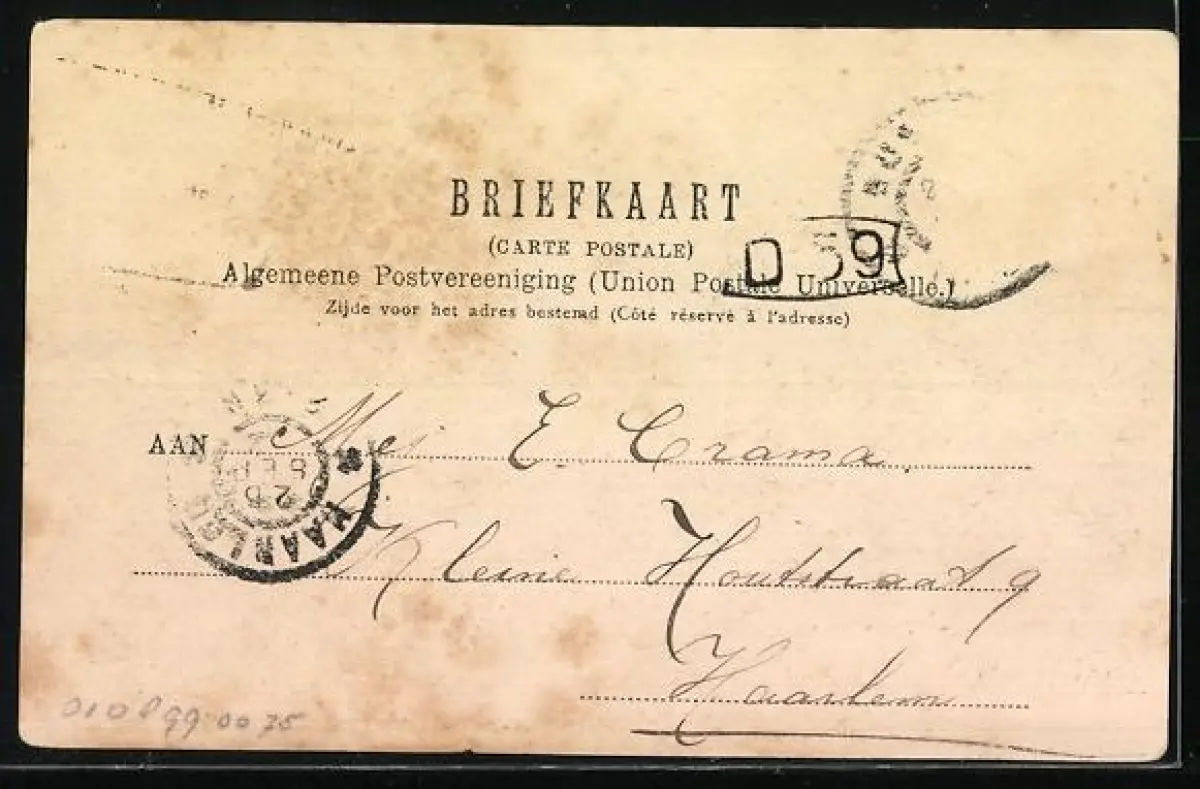 BRIEFKAART
(CARTE POSTALE)
Algemeene Postvereeniging (Union Postale Universelle.)
Zijde voor het adres bestemd (Côté réservé à l'adresse)
D 59
AAN Mej E. Crama
HAARLEM
SEP
Kleine Houtstraat 9
Haarlem
0108990075